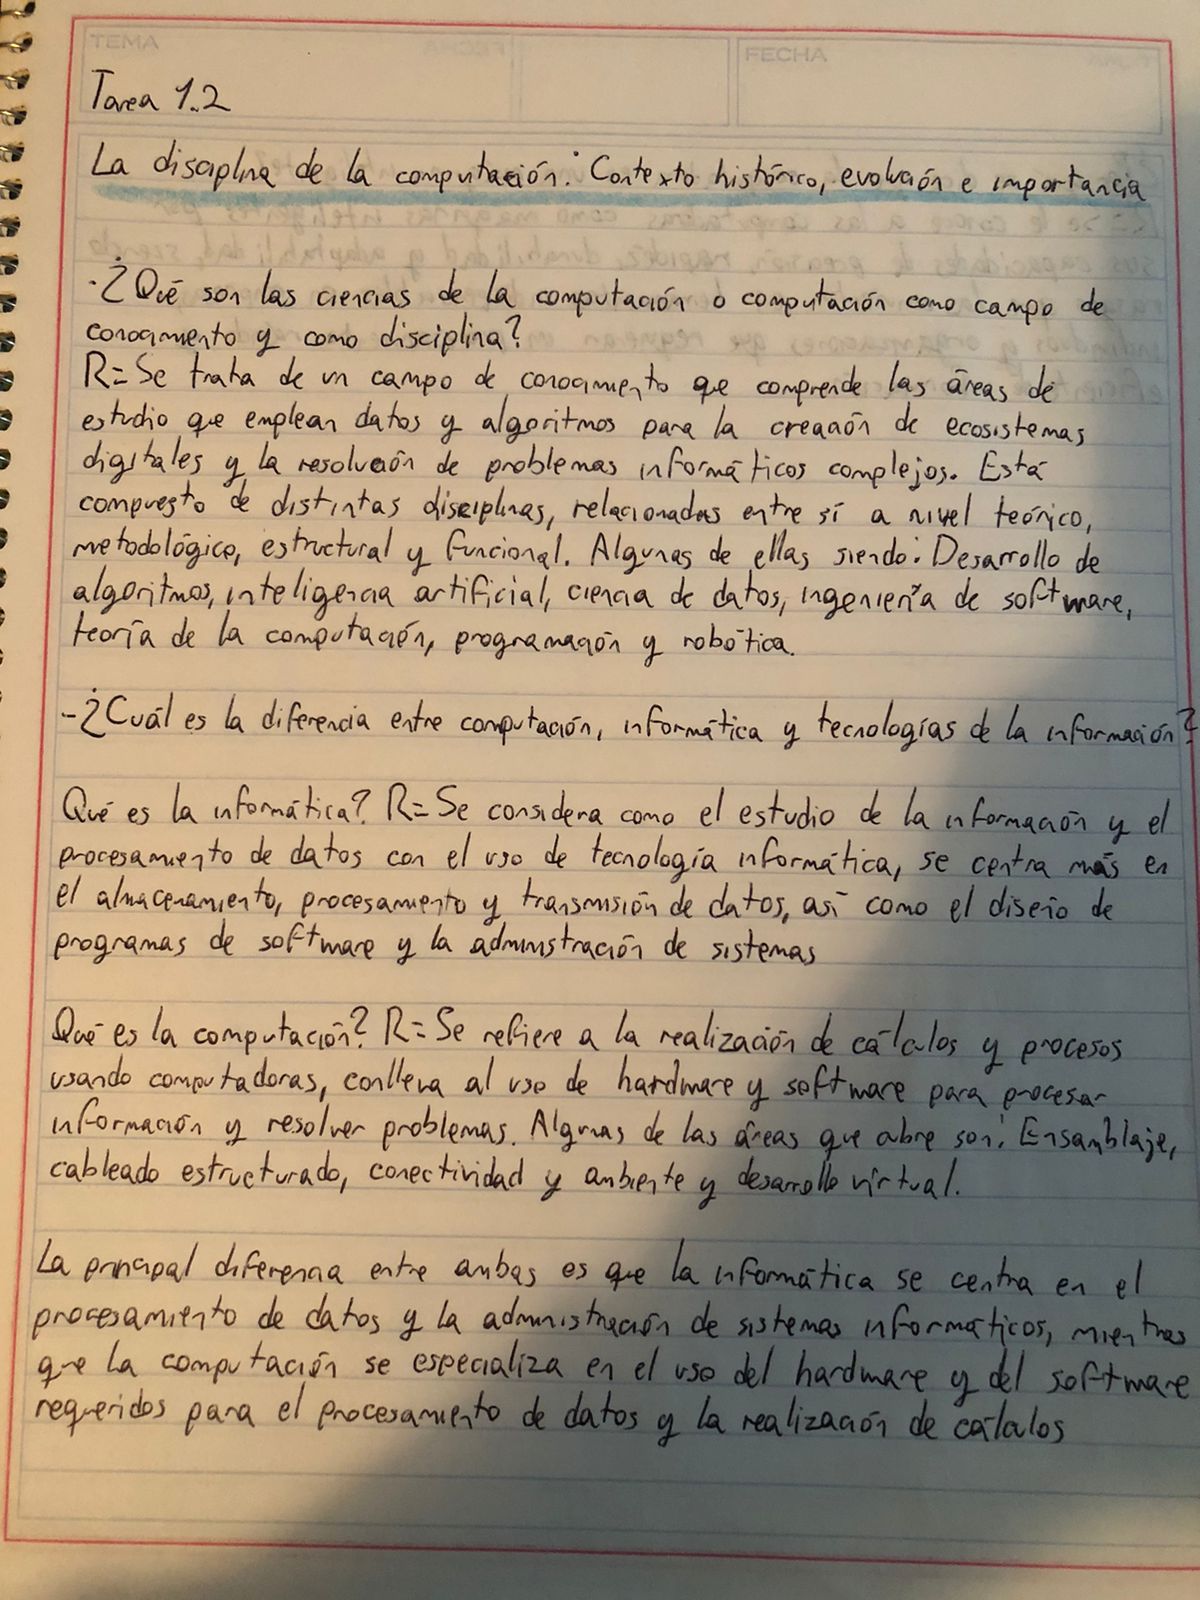 TEMA
FECHA
Tarea 1.2
La disciplina de la computación: Contexto histórico, evolución e importancia
-¿Qué son las ciencias de la computación o computación como campo de
conocimiento y como disciplina?
R= Se trata de un campo de conocimiento que comprende las áreas de
estudio que emplean datos y algoritmos para la creación de ecosistemas
digitales y la resolución de problemas informáticos complejos. Está
compuesto de distintas disciplinas, relacionadas entre sí a nivel teórico,
metodológico, estructural y funcional. Algunas de ellas siendo: Desarrollo de
algoritmos, inteligencia artificial, ciencia de datos, ingeniería de software,
teoría de la computación, programación y robótica.
-¿Cuál es la diferencia entre computación, informática y tecnologías de la información?
Qué es la informática? R= Se considera como el estudio de la información y el
procesamiento de datos con el uso de tecnología informática, se centra más en
el almacenamiento, procesamiento y transmisión de datos, así como el diseño de
programas de software y la administración de sistemas
Qué es la computación? R= Se refiere a la realización de cálculos y procesos
usando computadoras, conlleva al uso de hardware y software para procesar
información y resolver problemas. Algunas de las áreas que abre son: Ensamblaje,
cableado estructurado, conectividad y ambiente y desarrollo virtual.
La principal diferencia entre ambas es que la informática se centra en el
procesamiento de datos y la administración de sistemas informáticos, mientras
que la computación se especializa en el uso del hardware y del software
requeridos para el procesamiento de datos y la realización de cálculos